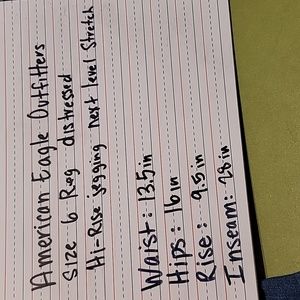 American Eagle Outfitters
Size 6 Reg distressed
Hi-Rise jegging next level stretch
Waist: 13.5in
Hips: 16in
Rise: 9.5in
Inseam: 28in